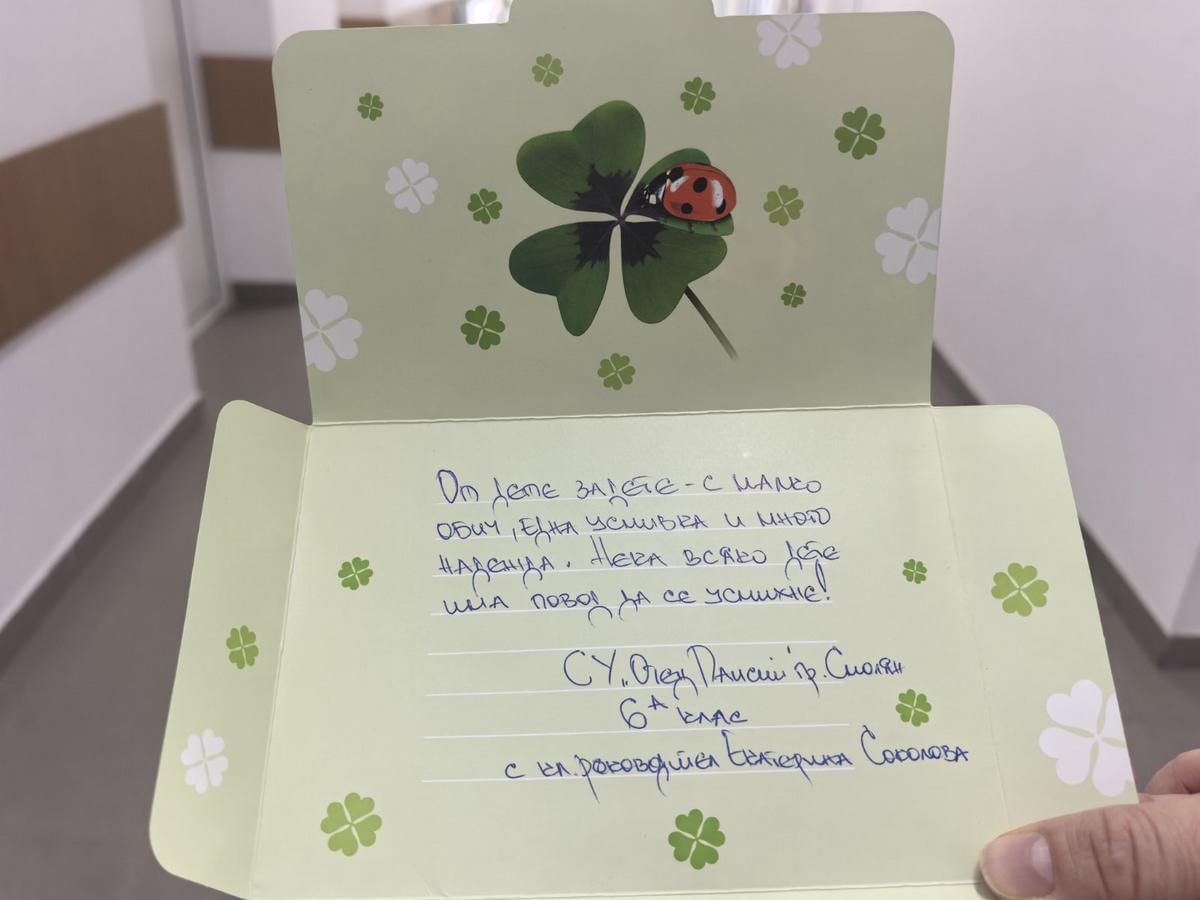 От дете за дете - с малко
обич, една усмивка и много
надежда. Нека всяко дете
има повод да се усмихне!
СУ „Отец Паисий" гр. Смолян
6А клас
с кл. ръководител Екатерина Соколова